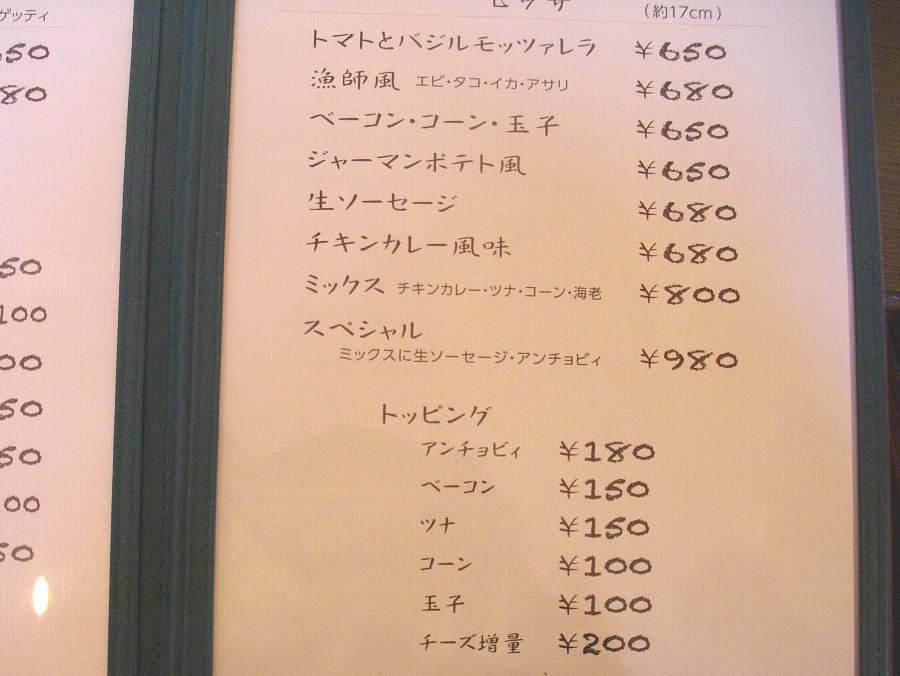 ピッザ (約17cm)
トマトとバジルモッツァレラ ¥650
漁師風 エビ・タコ・イカ・アサリ ¥680
ベーコン・コーン・玉子 ¥650
ジャーマンポテト風 ¥650
生ソーセージ ¥680
チキンカレー風味 ¥680
ミックス チキンカレー・ツナ・コーン・海老 ¥800
スペシャル
ミックスに生ソーセージ・アンチョビィ ¥980
トッピング
アンチョビィ ¥180
ベーコン ¥150
ツナ ¥150
コーン ¥100
玉子 ¥100
チーズ増量 ¥200